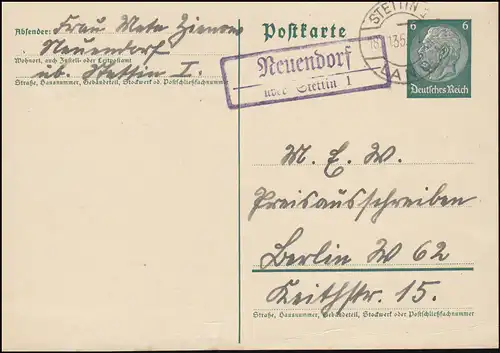 Absender: Frau Meta Zienow
Neuendorf
Wohnort, auch Zustell- oder Leitpostamt
üb. Stettin I.
Straße, Hausnummer, Gebäudeteil, Stockwerk od. Postschließfachnummer
Postkarte
Neuendorf
über Stettin 1
STETTIN
LAND
6 6
Deutsches Reich
M. E. W.
Preisausschreiben
Berlin W 62
Keithstr. 15.
Straße, Hausnummer, Gebäudeteil, Stockwerk oder Postschließfachnummer